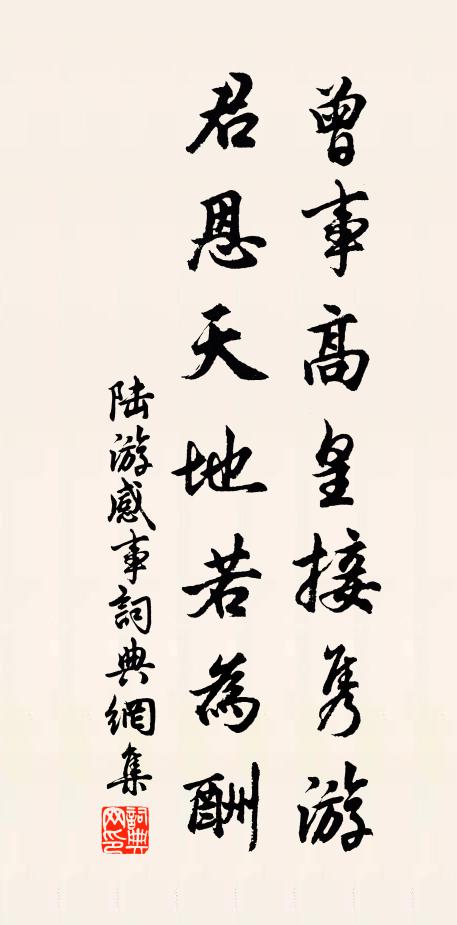 曾事高皇接隽游
君恩天地若為酬
陆游感事詞典網集
詞典网印